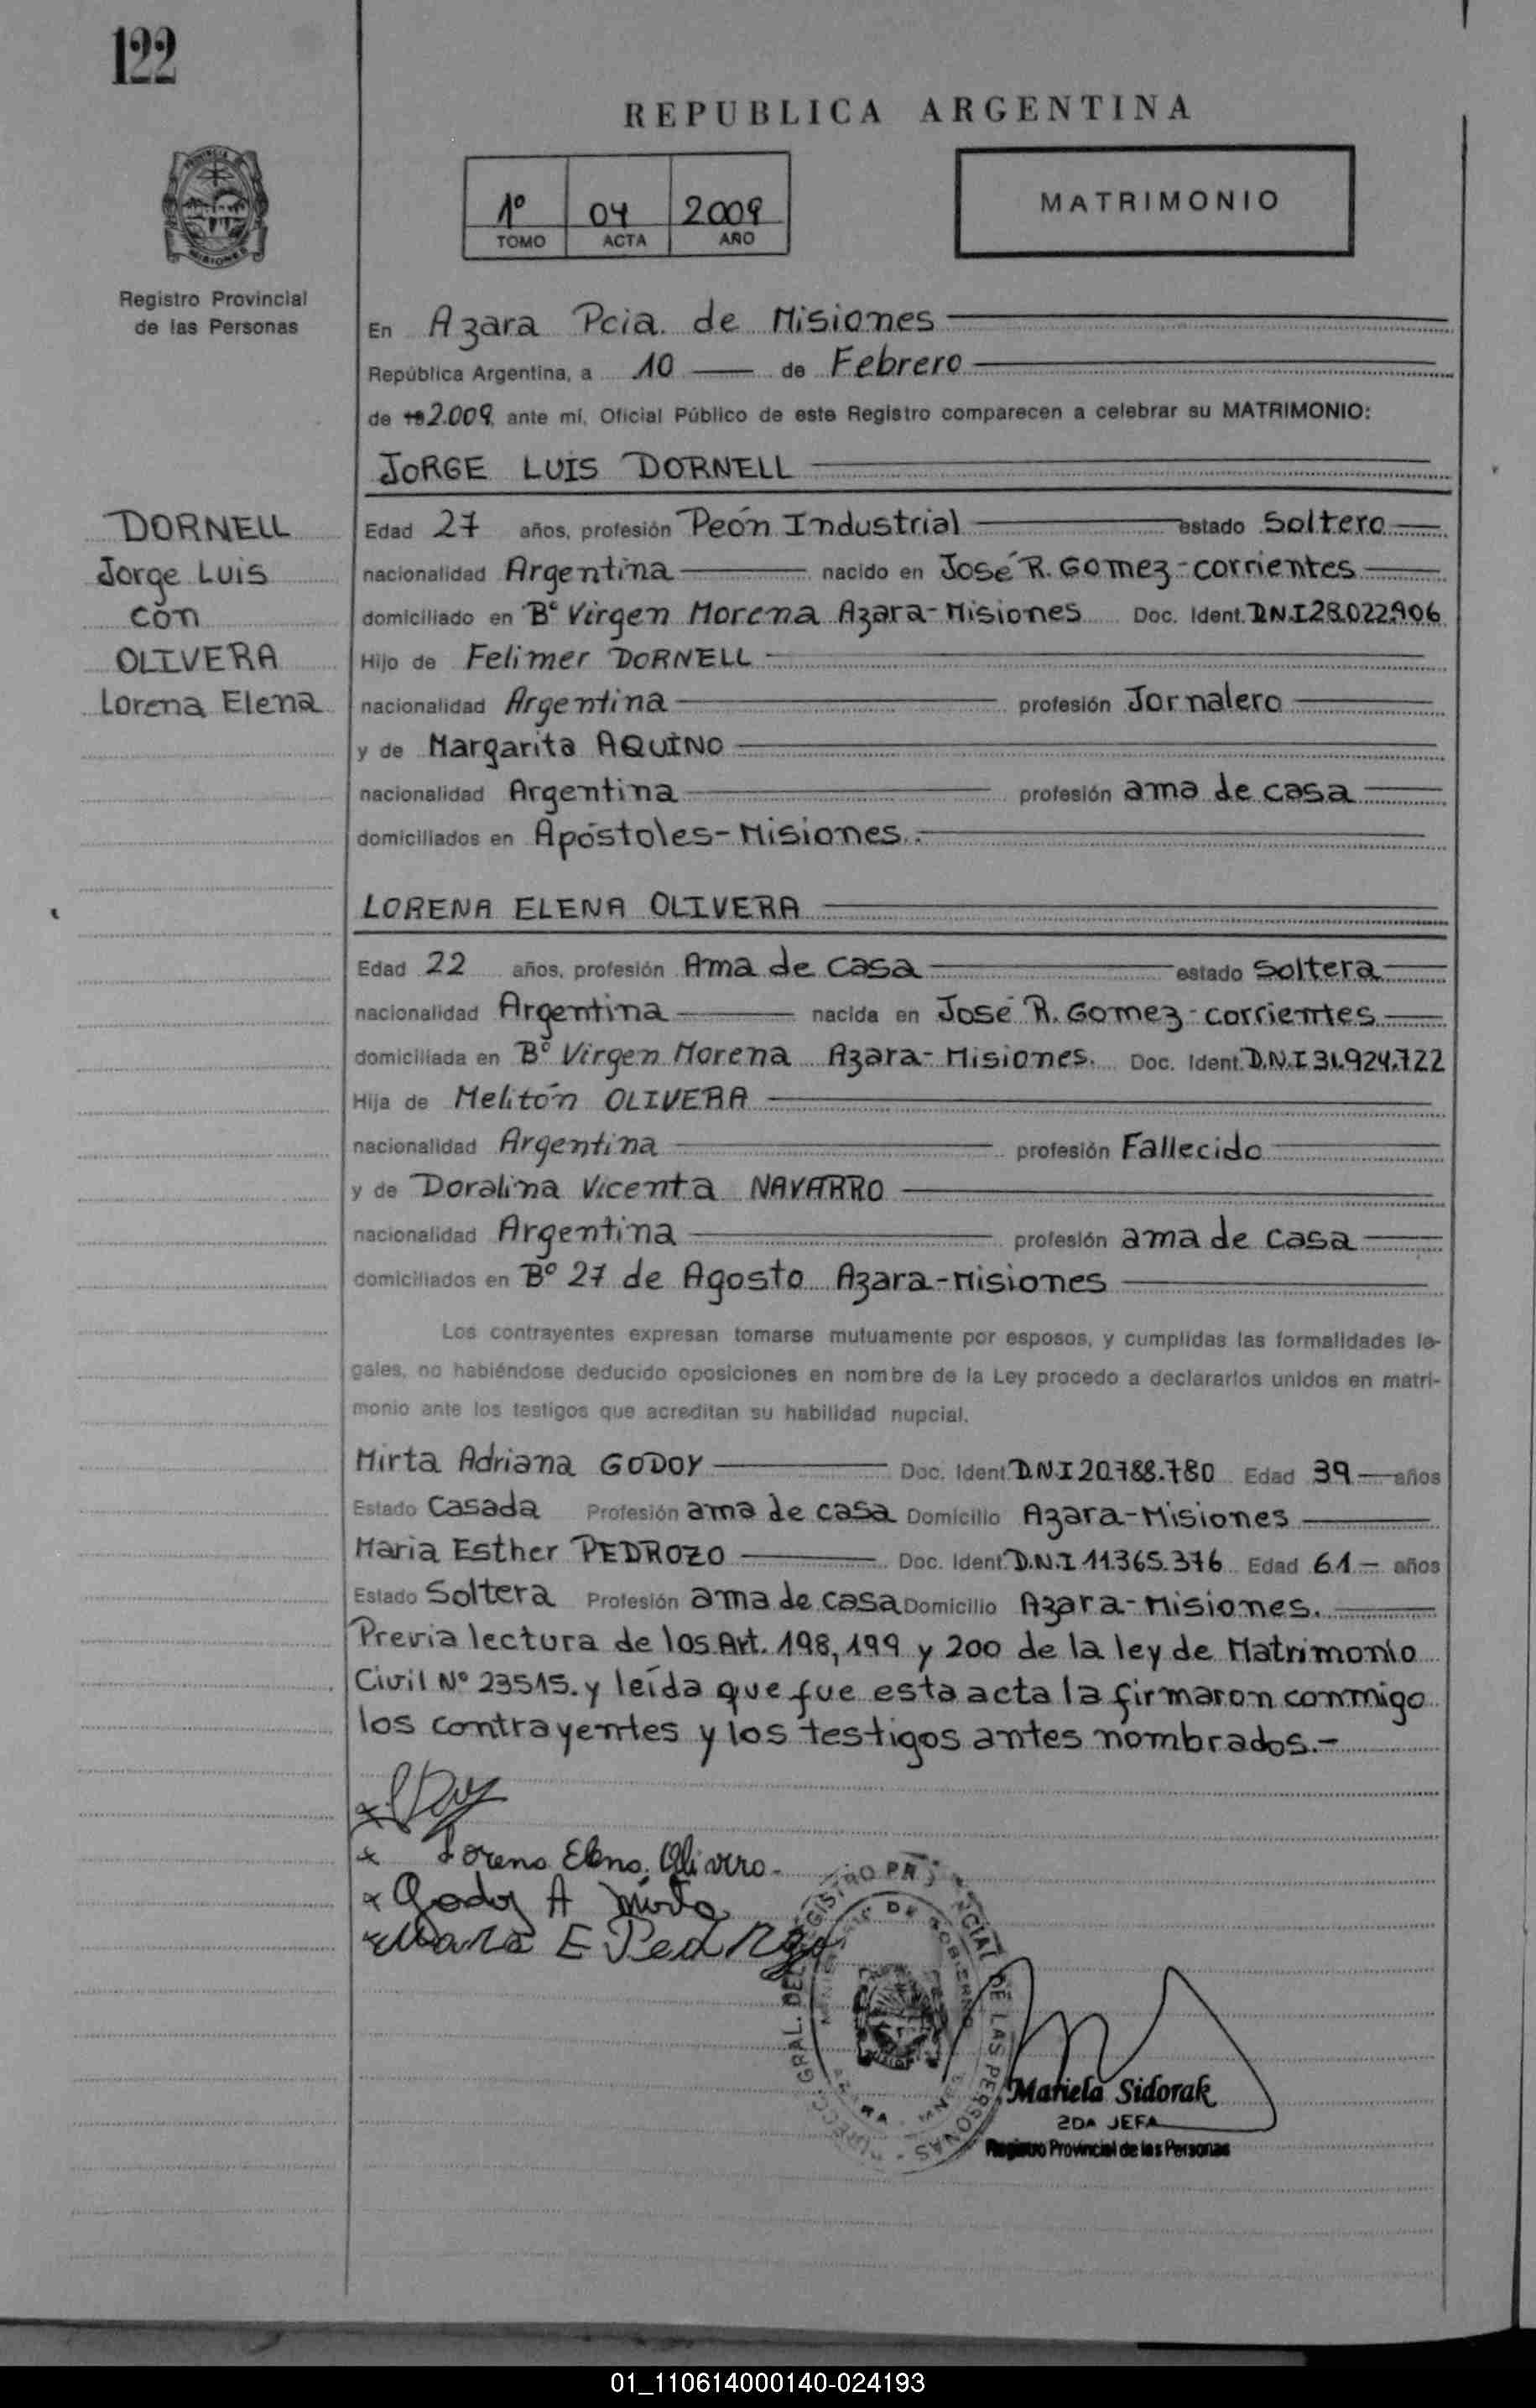 122
REPUBLICA ARGENTINA
1º 04 2009
TOMO ACTA AÑO
MATRIMONIO
Registro Provincial
de las Personas
En Azara Pcia. de Misiones
República Argentina, a 10 de Febrero
de 19 2.009, ante mí, Oficial Público de este Registro comparecen a celebrar su MATRIMONIO:
JORGE LUIS DORNELL
DORNELL
Jorge Luis
con
OLIVERA
Lorena Elena
Edad 27 años, profesión Peón Industrial estado Soltero
nacionalidad Argentina nacido en José R. Gomez - corrientes
domiciliado en Bº Virgen Morena Azara - Misiones Doc. Ident. D.N.I 28.022.906
Hijo de Felimer DORNELL
nacionalidad Argentina profesión Jornalero
y de Margarita AQUINO
nacionalidad Argentina profesión ama de casa
domiciliados en Apóstoles - Misiones.-
LORENA ELENA OLIVERA
Edad 22 años, profesión Ama de Casa estado Soltera
nacionalidad Argentina nacida en José R. Gomez - corrientes
domiciliada en Bº Virgen Morena Azara - Misiones. Doc. Ident. D.N.I 31.924.722
Hija de Melitón OLIVERA
nacionalidad Argentina profesión Fallecido
y de Doralina Vicenta NAVARRO
nacionalidad Argentina profesión ama de casa
domiciliados en Bº 27 de Agosto Azara - Misiones
Los contrayentes expresan tomarse mutuamente por esposos, y cumplidas las formalidades le-
gales, no habiéndose deducido oposiciones en nombre de la Ley procedo a declararlos unidos en matri-
monio ante los testigos que acreditan su habilidad nupcial.
Mirta Adriana GODOY Doc. Ident. D.N.I 20.788.780 Edad 39 años
Estado Casada Profesión ama de casa Domicilio Azara - Misiones
Maria Esther PEDROZO Doc. Ident. D.N.I 11.365.376 Edad 61 - años
Estado Soltera Profesión ama de casa Domicilio Azara - Misiones.
Previa lectura de los Art. 198, 199 y 200 de la ley de Matrimonio
Civil Nº 23515. y leída que fue esta acta la firmaron conmigo
los contrayentes y los testigos antes nombrados.-
x
x Lorena Elena Olivera-
x Godoy A Mirta
x Maria E Pedrozo
Mariela Sidorak
2DA JEFA
Registro Provincial de las Personas
01_110614000140-024193